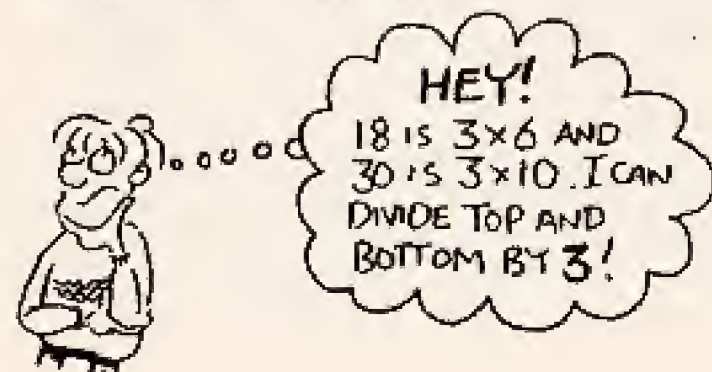 HEY!
18 IS 3×6 AND
30 IS 3×10. I CAN
DIVIDE TOP AND
BOTTOM BY 3!